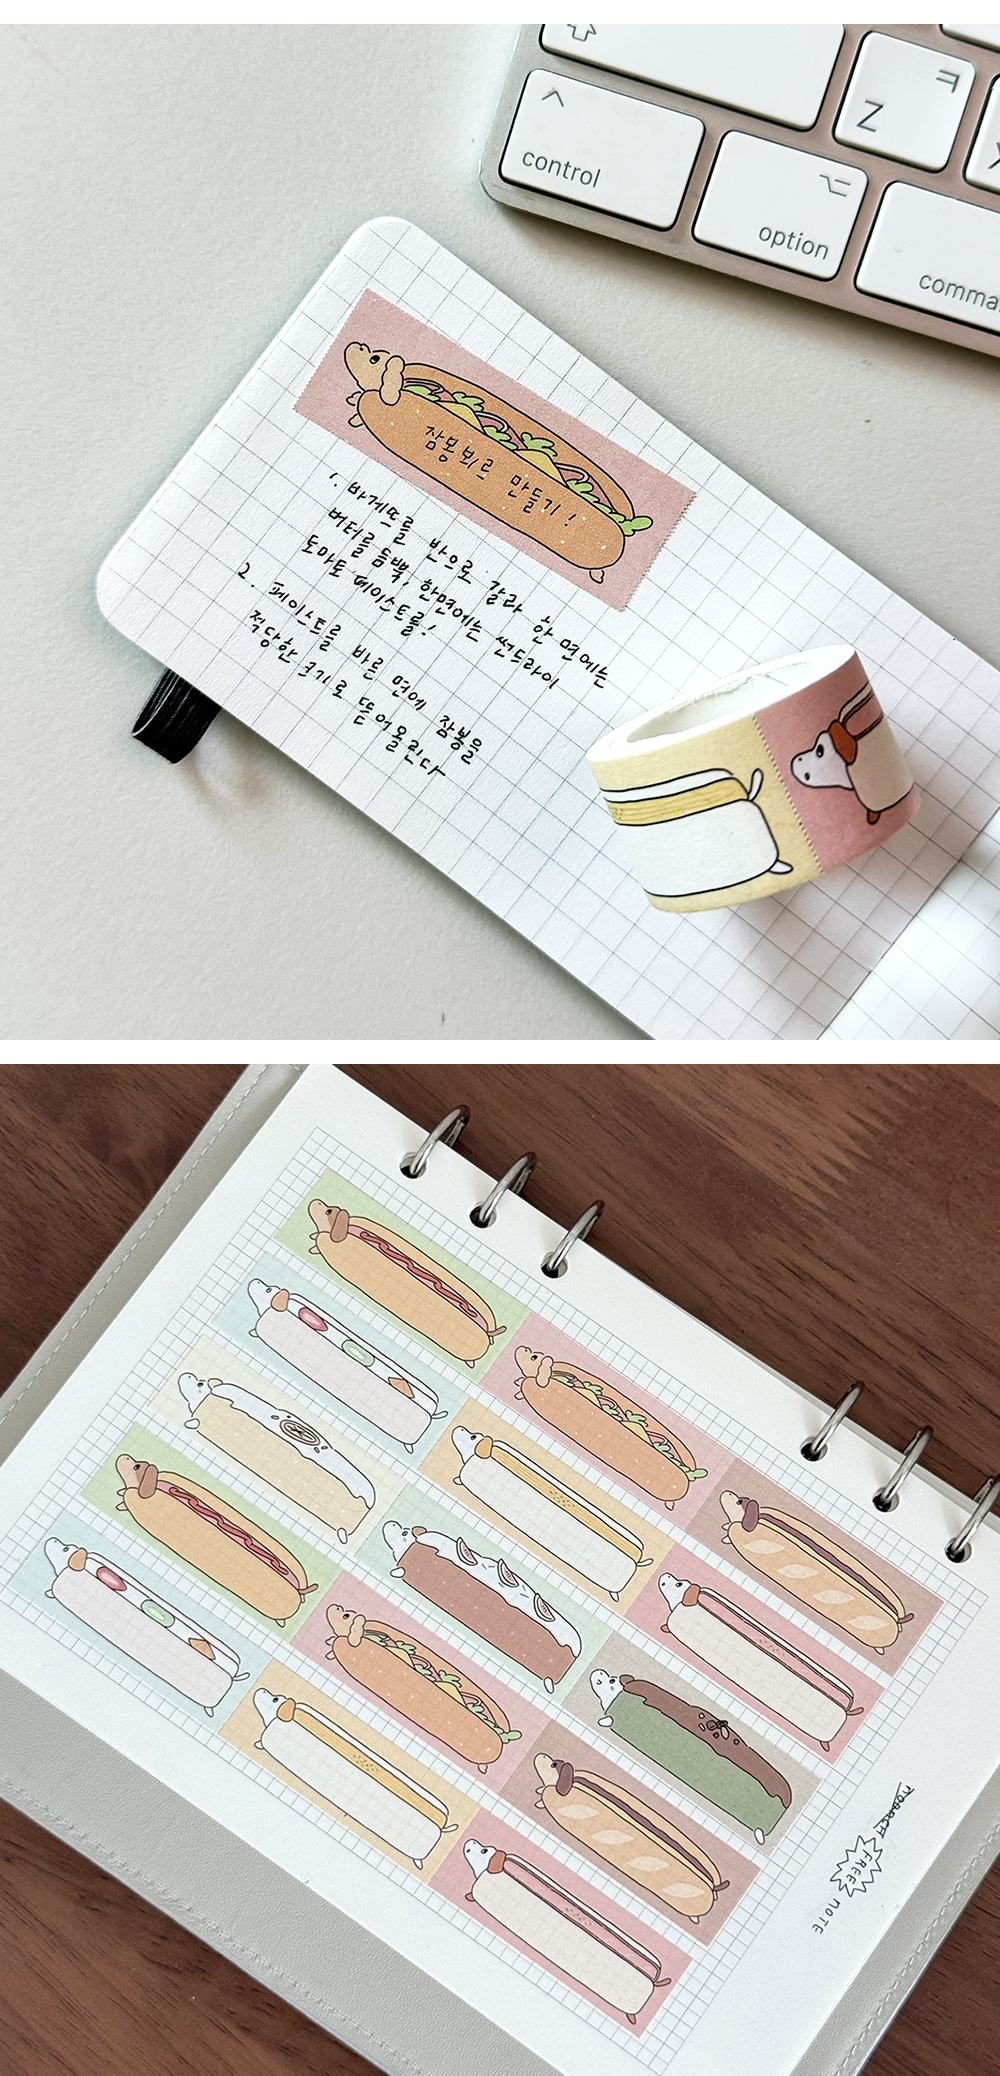 control
option
Z
ㅋ
잠봉뵈르 만들기!
1. 바게뜨를 반으로 갈라 한 면에는
버터를 듬뿍, 한면에는 썬드라이
토마토 페이스트를!
2. 페이스트를 바른 면에 잠봉을
적당한 크기로 뜯어올린다
FREE
NOTE